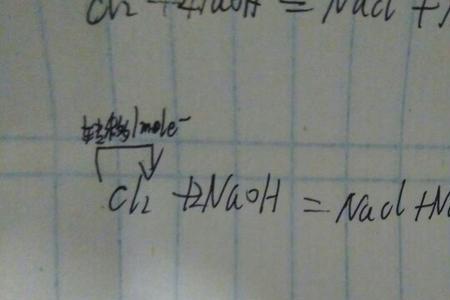 Cl₂ + 2NaOH = NaCl +
转移1mole⁻
Cl₂ + 2NaOH = NaCl + Na